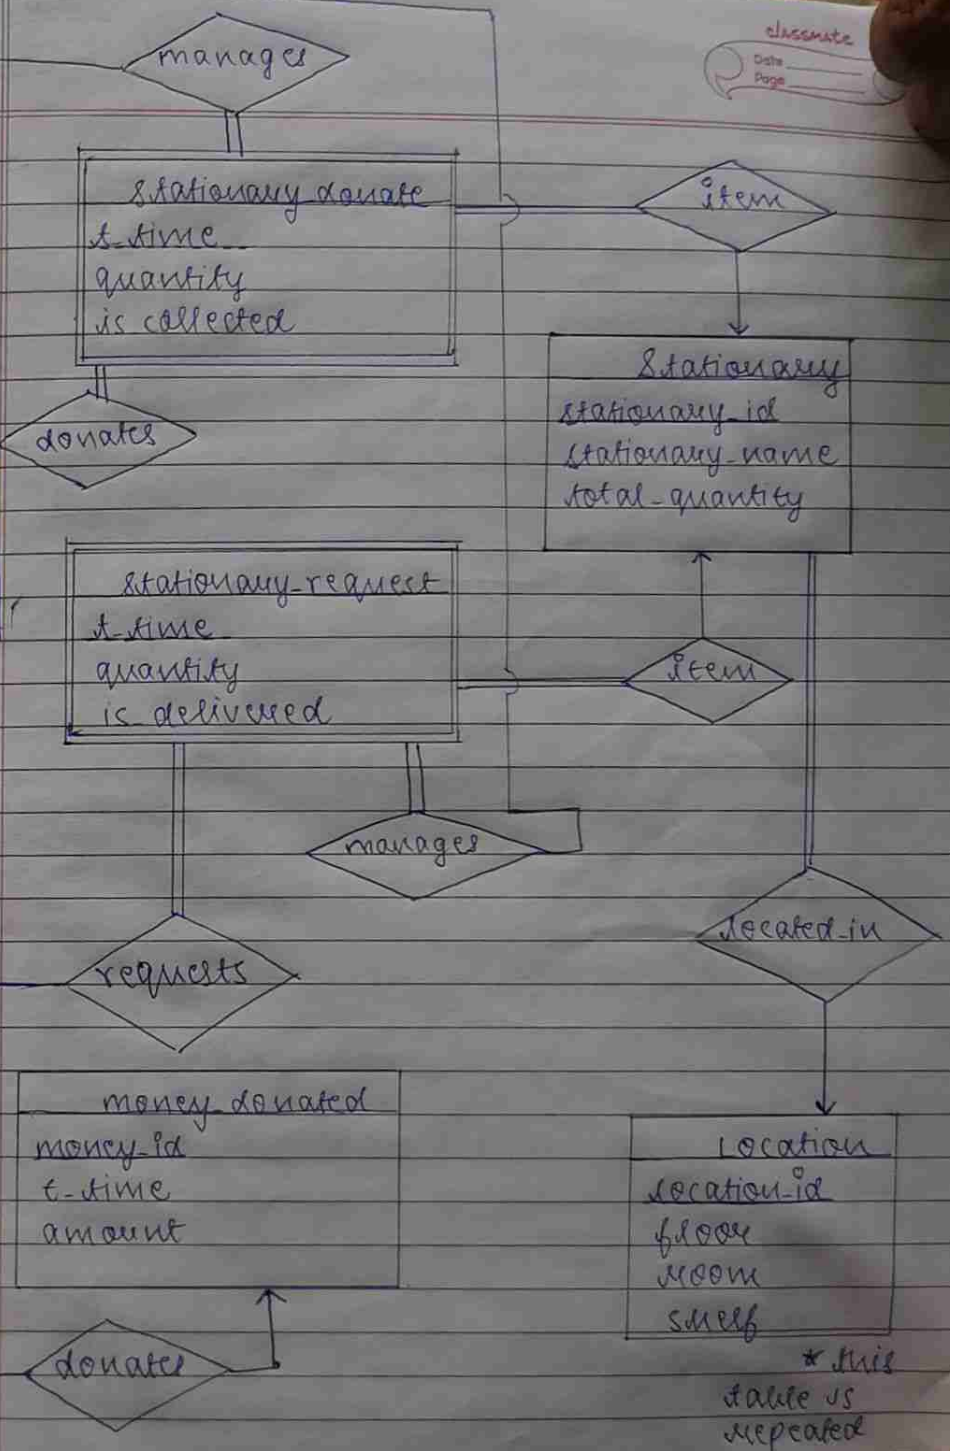 classmate
Date
Page
manages
Stationary_donate
t_time
quantity
is collected
item
donates
Stationary
stationary_id
stationary_name
total_quantity
Stationary_request
t_time
quantity
is_delivered
item
manages
located_in
requests
money_donated
money_id
t_time
amount
Location
location_id
floor
room
shelf
donates
* this
table is
repeated